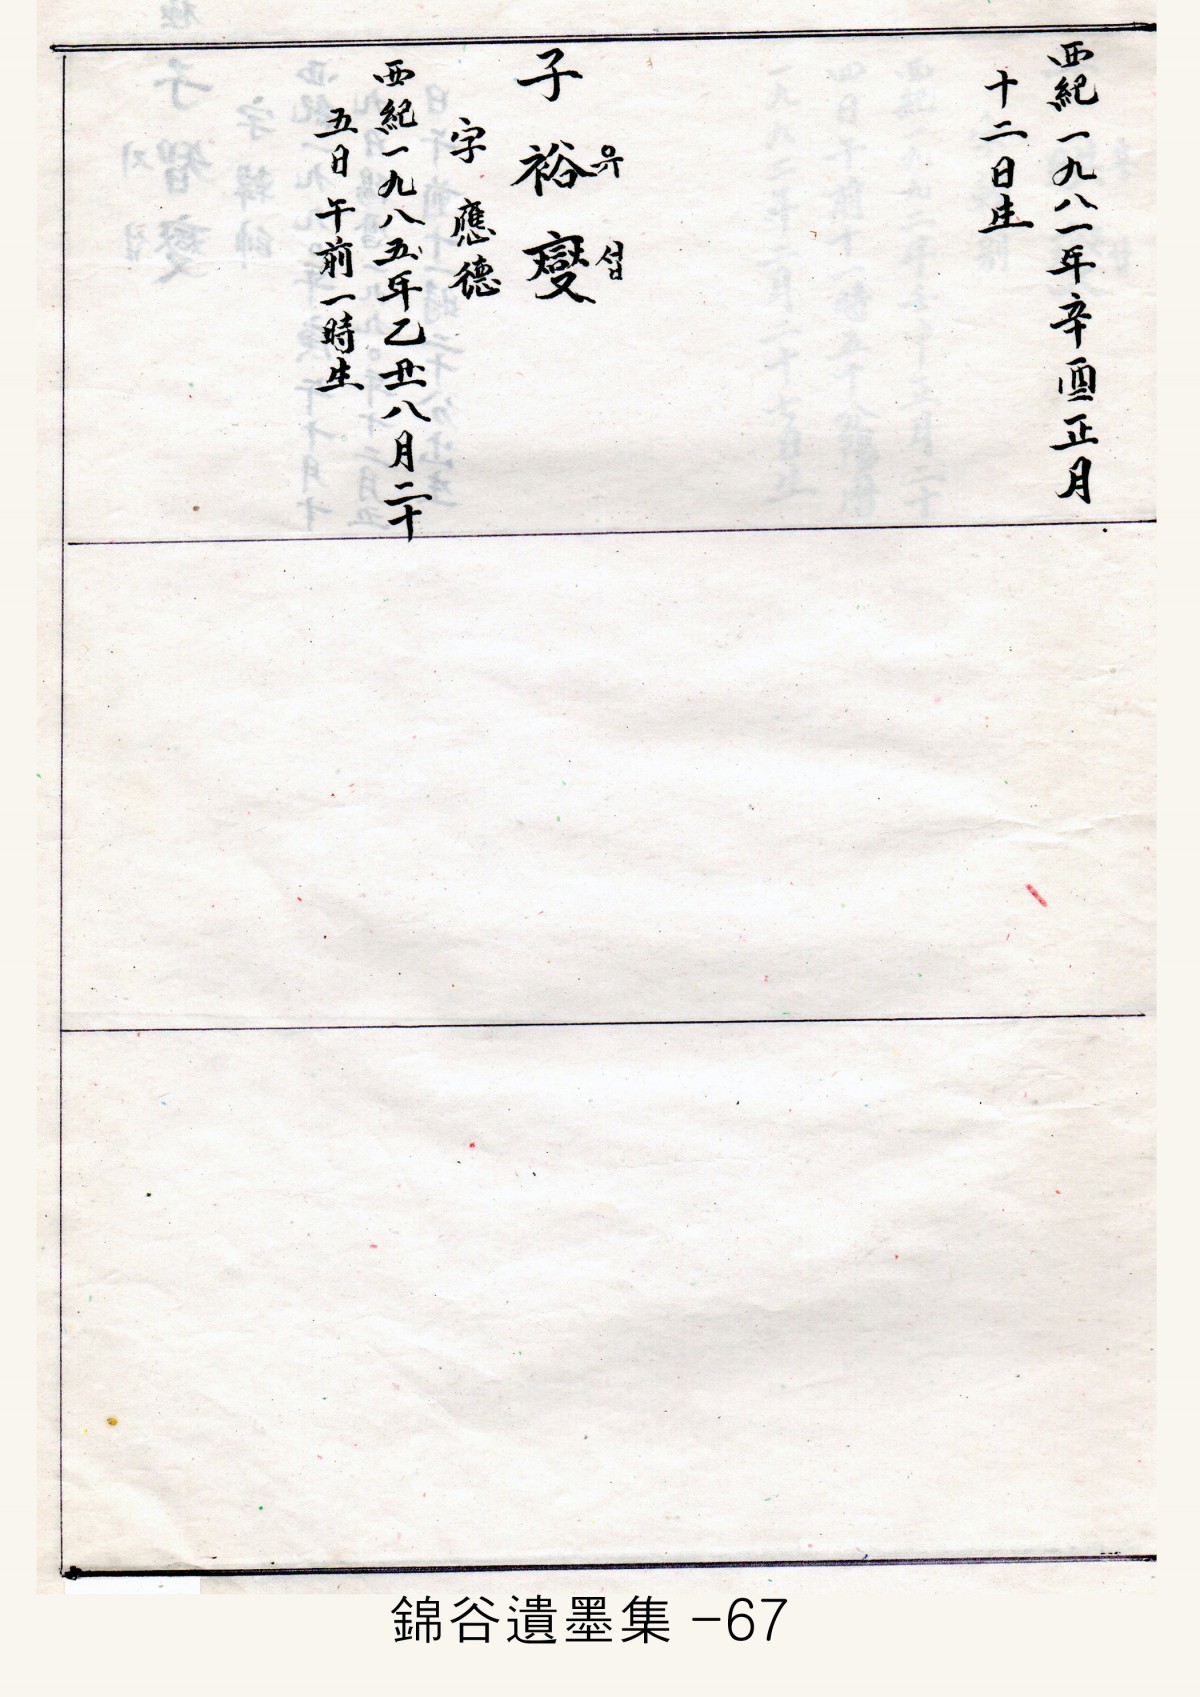 西紀一九八一年辛酉正月
十二日生
子裕燮
유섭
字應德
西紀一九八五年乙丑八月二十
五日午前一時生
錦谷遺墨集 -67